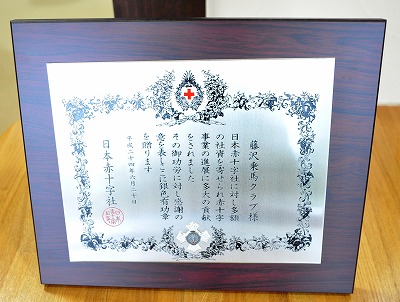 藤沢乗馬クラブ様
日本赤十字社に対し多額
の社資を寄せられ赤十字
事業の進展に多大の貢献
をされました
その御功労に対し感謝の
意を表しここに銀色有功章
を贈ります
平成二十四年六月二十日
日本赤十字社